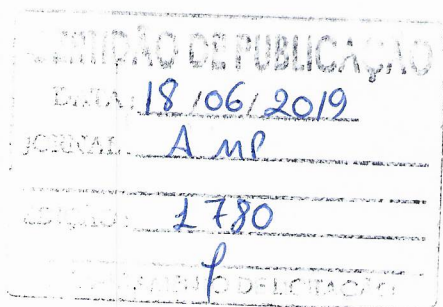 CERTIDÃO DE PUBLICAÇÃO
DATA: 18/06/2019
JORNAL: AMP
EDIÇÃO: 1780
DE LICITAÇÃO